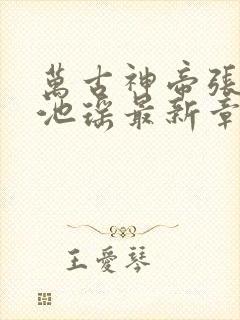 萬古神帝張
池瑤最新章
王愛琴